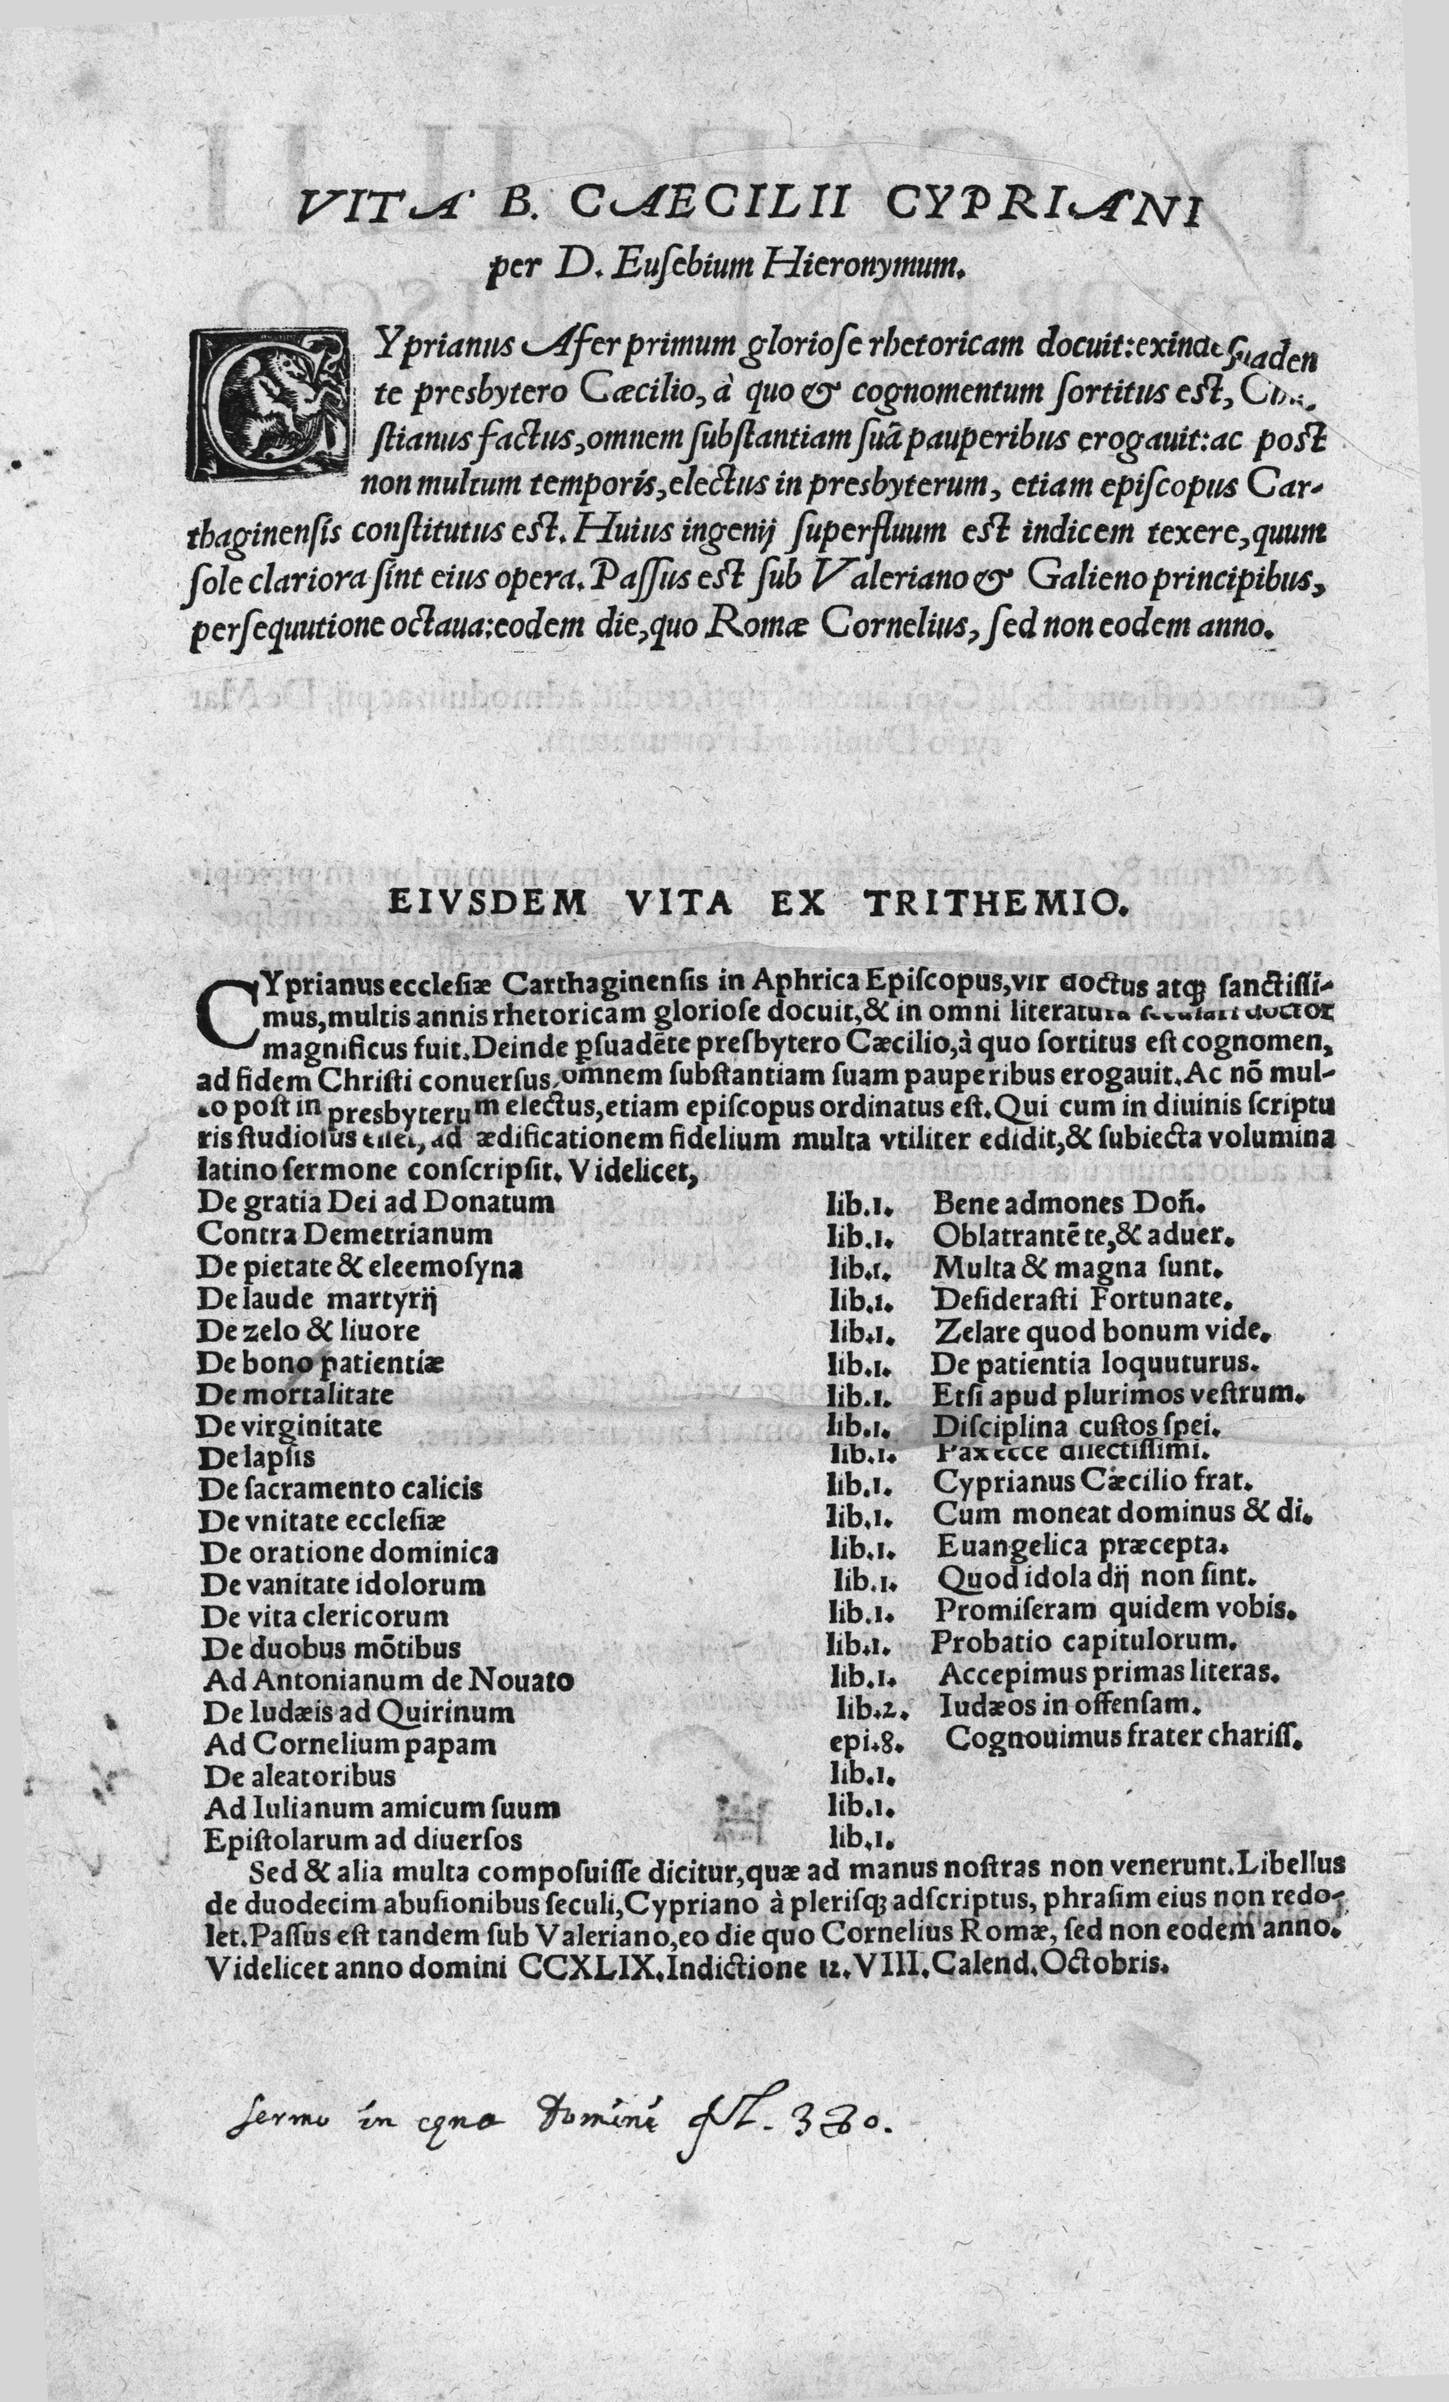 VITA B. CAECILII CYPRIANI
per D. Euſebium Hieronymum.
CYprianus Afer primum glorioſe rhetoricam docuit:exinde ſuaden
te presbytero Cæcilio, à quo & cognomentum ſortitus est,
ſtianus factus,omnem ſubſtantiam ſuā pauperibus erogauit:ac post
non multum temporis,electus in presbyterum, etiam epiſcopus Car-
thaginenſis conſtitutus est. Huius ingenij ſuperfluum est indicem texere,quum
ſole clariora ſint eius opera. Paſſus est ſub Valeriano & Galieno principibus,
perſequutione octaua:eodem die,quo Romæ Cornelius, ſed non eodem anno.
EIVSDEM VITA EX TRITHEMIO.
CYprianus eccleſiæ Carthaginenſis in Aphrica Epiſcopus,vir doctus atqꝫ ſanctiſſi-
mus,multis annis rhetoricam glorioſe docuit,& in omni literatura ſeculari doctor
magnificus fuit.Deinde ꝑſuadēte presbytero Cæcilio,à quo ſortitus est cognomen,
ad fidem Chriſti conuerſus,omnem ſubſtantiam ſuam pauperibus erogauit.Ac nō mul-
to poſt in presbyterum electus,etiam epiſcopus ordinatus eſt.Qui cum in diuinis ſcriptu
ris ſtudioſus eſſet, ad ædificationem fidelium multa vtiliter edidit,& ſubiecta volumina
latino ſermone conſcripſit. Videlicet,
De gratia Dei ad Donatum lib.1. Bene admones Doñ.
Contra Demetrianum lib.1. Oblatrantē te,& aduer.
De pietate & eleemoſyna lib.1. Multa & magna ſunt.
De laude martyrij lib.1. Deſideraſti Fortunate.
De zelo & liuore lib.1. Zelare quod bonum vide.
De bono patientiæ lib.1. De patientia loquuturus.
De mortalitate lib.1. Etſi apud plurimos veſtrum.
De virginitate lib.1. Diſciplina cuſtos ſpei.
De lapſis lib.1. Pax ecce dilectiſſimi.
De ſacramento calicis lib.1. Cyprianus Cæcilio frat.
De vnitate eccleſiæ lib.1. Cum moneat dominus & di.
De oratione dominica lib.1. Euangelica præcepta.
De vanitate idolorum lib.1. Quod idola dij non ſint.
De vita clericorum lib.1. Promiſeram quidem vobis.
De duobus mōtibus lib.1. Probatio capitulorum.
Ad Antonianum de Nouato lib.1. Accepimus primas literas.
De Iudæis ad Quirinum lib.2. Iudæos in offenſam.
Ad Cornelium papam epi.8. Cognouimus frater chariſſ.
De aleatoribus lib.1.
Ad Iulianum amicum ſuum lib.1.
Epiſtolarum ad diuerſos lib.1.
Sed & alia multa compoſuiſſe dicitur,quæ ad manus noſtras non venerunt.Libellus
de duodecim abuſionibus ſeculi,Cypriano à pleriſqꝫ adſcriptus, phraſim eius non redo-
let.Paſſus eſt tandem ſub Valeriano,eo die quo Cornelius Romæ, ſed non eodem anno.
Videlicet anno domini CCXLIX.Indictione 12.VIII.Calend.Octobris.
ſermo in cęna Domini